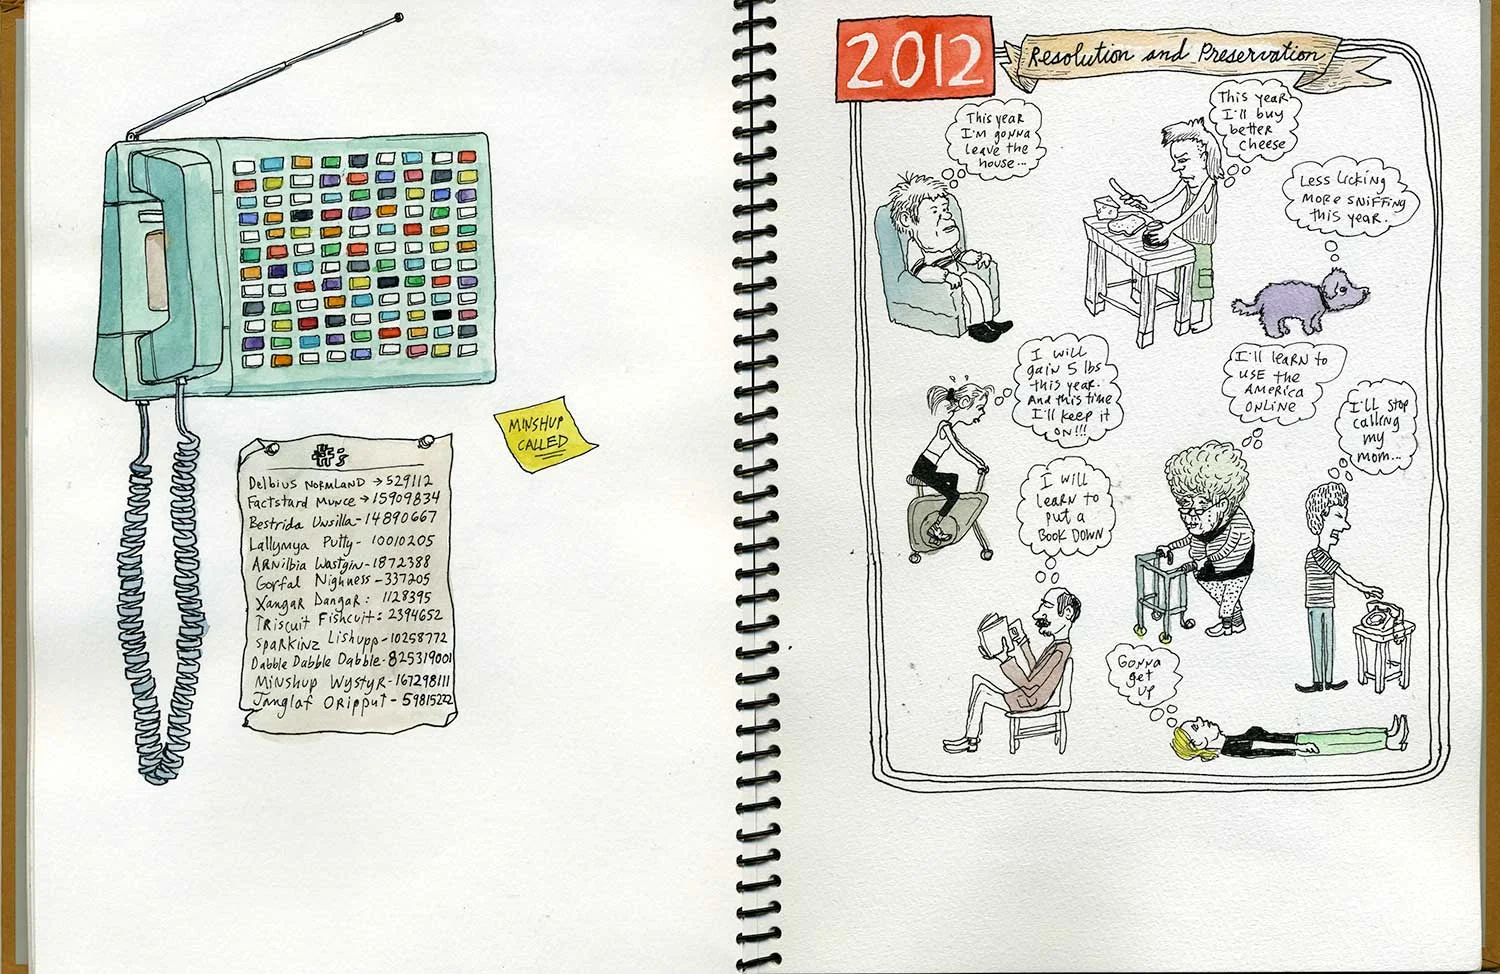 #'s
Delbius Normland → 529112
Factstard Munce → 15909834
Bestrida Unsilla - 14890667
Lallymya Putty - 10010205
Arnilbia Wastgin - 1872388
Gorfal Nighness - 337205
Xangar Dangar : 1128395
Triscuit Fishcuit : 2394652
Sparkinz Lishupp - 10258772
Dabble Dabble Dabble - 825319001
Minshup Wystyr - 167298111
Janglaf Oripput - 59815222
MINSHUP
CALLED
2012
Resolution and Preservation
This year
I'm gonna
leave the
house...
This year
I'll buy
better
cheese
Less licking
more sniffing
this year.
I will
gain 5 lbs
this year.
And this time
I'll keep it
on!!!
I'll learn to
use the
America
Online
I'll stop
calling
my
mom...
I will
learn to
put a
book down
Gonna
get
up